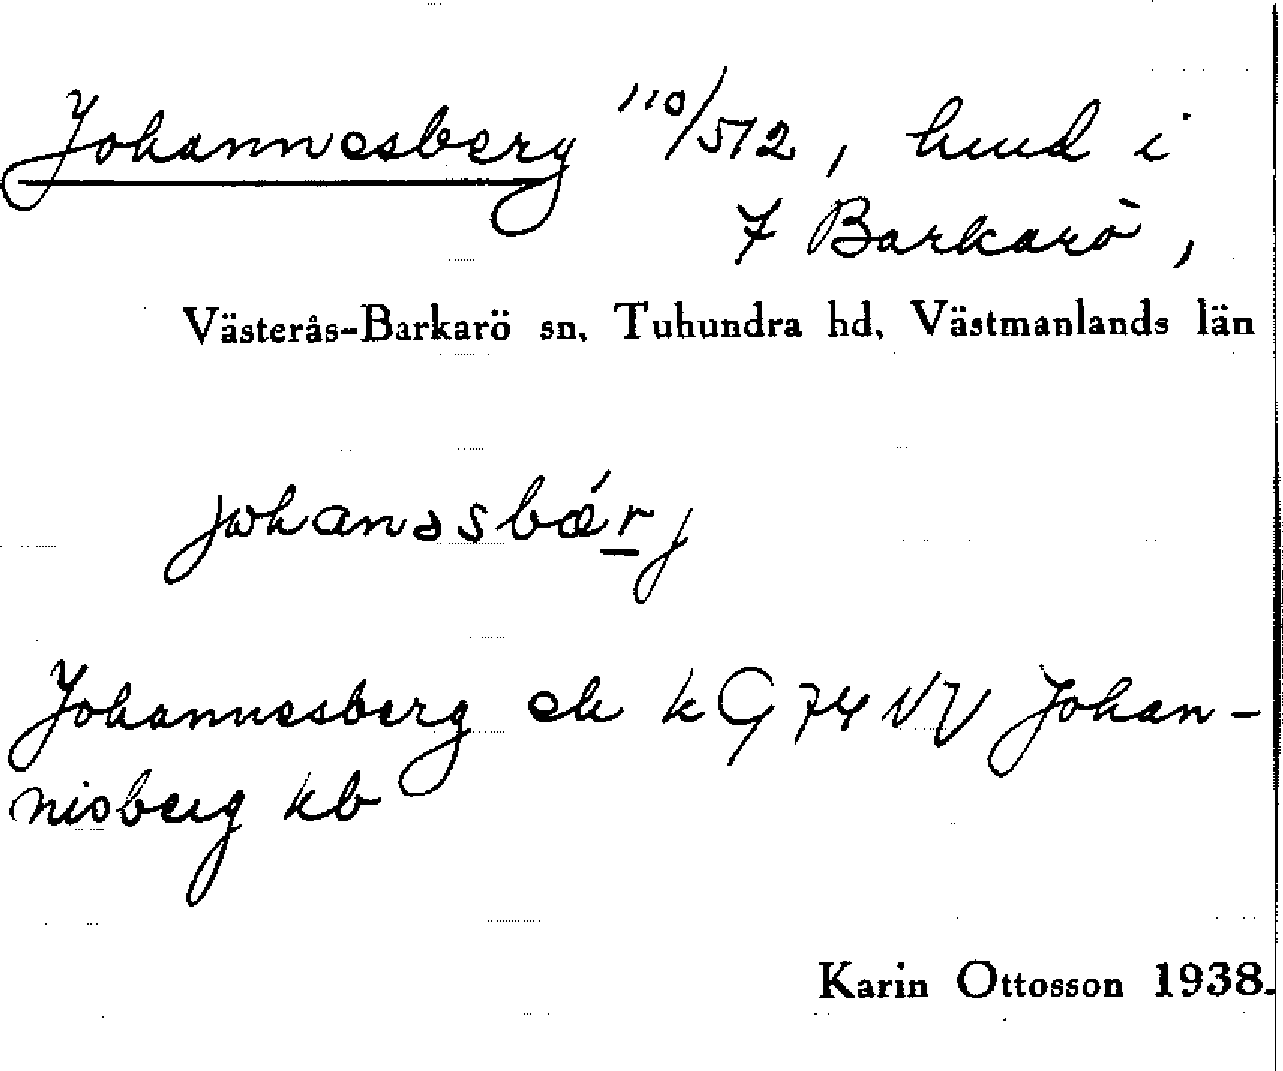 Johannesberg 110/512, hmd i
7 Barkarö,
Västerås-Barkarö sn, Tuhundra hd, Västmanlands län
johanəsbǽrj
Johannesberg ek kG 74 NV Johan-
nisberg kb
Karin Ottosson 1938.